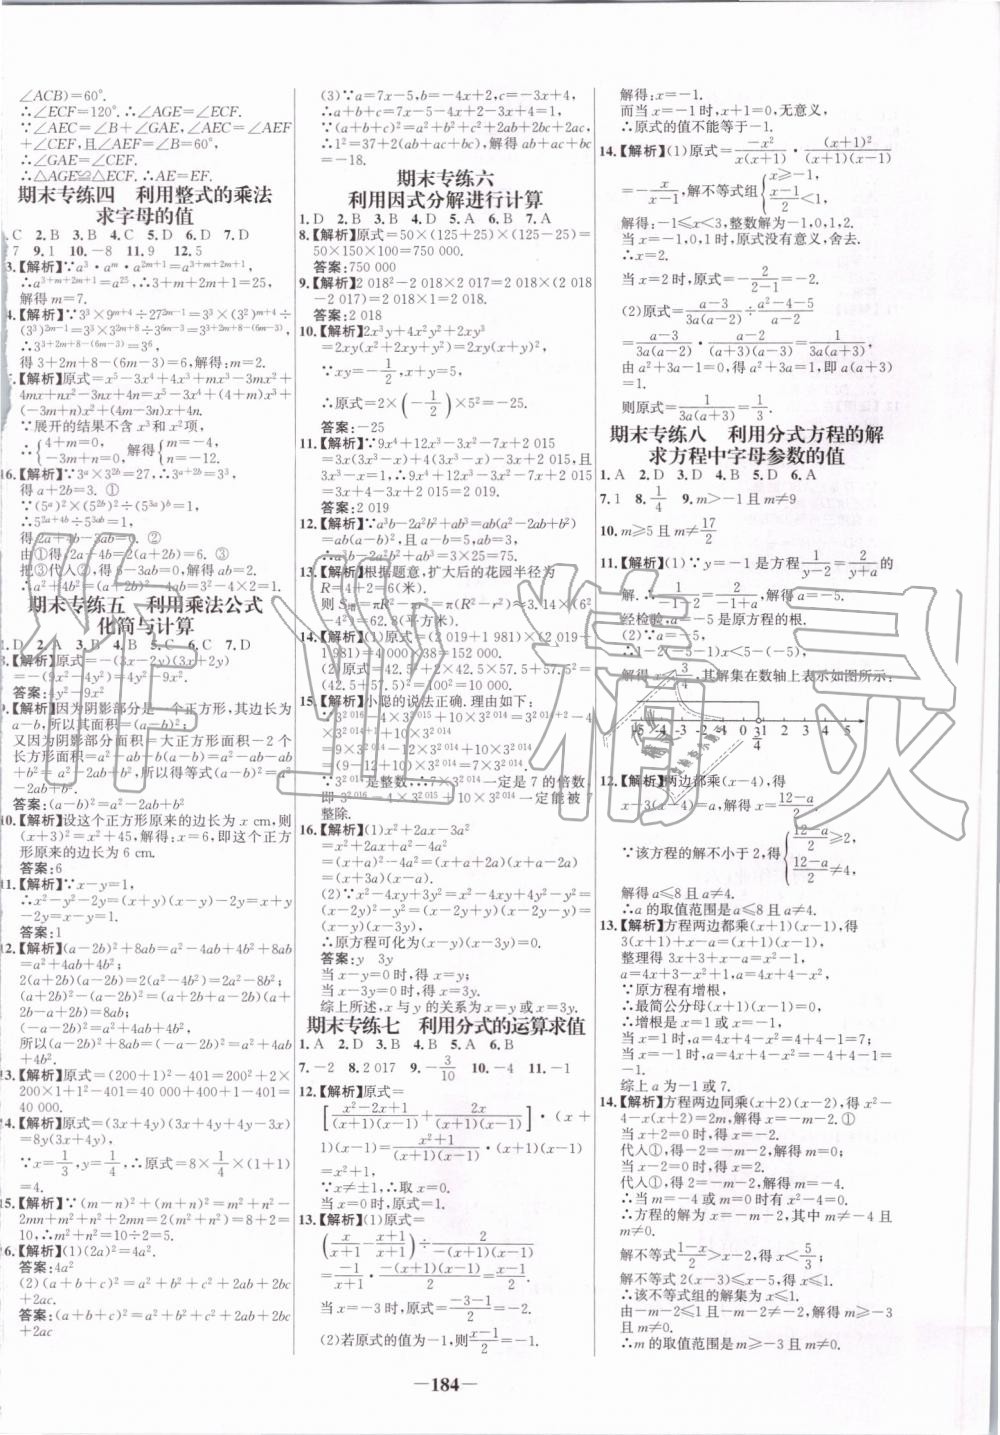 ∠ACB)=60°.
∴∠ECF=120°.∴∠AGE=∠ECF.
∵∠AEC=∠B+∠GAE,∠AEC=∠AEF
+∠CEF,且∠AEF=∠B=60°,
∴∠GAE=∠CEF.
∴△AGE≌△ECF.∴AE=EF.
期末专练四 利用整式的乘法
求字母的值
C 2.B 3.B 4.C 5.D 6.D 7.D
7 9.1 10.-8 11.9 12.5
3.【解析】∵a³·aᵐ·a²ᵐ⁺¹=a³⁺ᵐ⁺²ᵐ⁺¹
∴a³⁺ᵐ⁺²ᵐ⁺¹=a²⁵,∴3+m+2m+1=25,
解得m=7.
4.【解析】∵3³×9ᵐ⁺⁴÷27²ᵐ⁻¹=3³×(3²)ᵐ⁺⁴÷
(3³)²ᵐ⁻¹=3³×3²ᵐ⁺⁸÷3⁶ᵐ⁻³=3³⁺²ᵐ⁺⁸⁻⁽⁶ᵐ⁻³⁾,
∴3³⁺²ᵐ⁺⁸⁻⁽⁶ᵐ⁻³⁾=3⁶,
得3+2m+8-(6m-3)=6,解得:m=2.
【解析】原式=x⁵-3x⁴+4x³+mx³-3mx²+
4mx+nx²-3nx+4n=x⁵-3x⁴+(4+m)x³+
(-3m+n)x²+(4m-3n)x+4n.
∵展开的结果不含x³和x²项,
∴{4+m=0, -3m+n=0, 解得{m=-4, n=-12.
16.【解析】∵3ᵃ×3²ᵇ=27=3³,
得a+2b=3. ①
∵(5ᵃ)²×(5²ᵇ)²÷(5³ᵃ)ᵇ=1,
∴5²ᵃ⁺⁴ᵇ÷5³ᵃᵇ=1,
得2a+4b-3ab=0. ②
由①得2a+4b=2(a+2b)=6. ③
把③代入②,得6-3ab=0,解得ab=2.
∴a²+4b²=(a+2b)²-4ab=3²-4×2=1.
期末专练五 利用乘法公式
化简与计算
1.D 2.A 3.B 4.B 5.C 6.C 7.D
8.【解析】原式=-(3x-2y)(3x+2y)
=-(9x²-4y²)=4y²-9x².
答案:4y²-9x²
9.【解析】因为阴影部分是一个正方形,其边长为
a-b,所以其面积=(a-b)².
又因为阴影部分面积=大正方形面积-2个
长方形面积=a²-b(a-b)-ab=a²-ab-ab
+b²=a²-2ab+b²,所以得等式(a-b)²=
a²-2ab+b².
答案:(a-b)²=a²-2ab+b²
10.【解析】设这个正方形原来的边长为x cm,则
(x+3)²=x²+45,解得:x=6,即这个正方
形原来的边长为6 cm.
答案:6
11.【解析】∵x-y=1,
∴x²-y²-2y=(x+y)(x-y)-2y=x+y
-2y=x-y=1.
答案:1
12.【解析】(a-2b)²+8ab=a²-4ab+4b²+8ab
=a²+4ab+4b²;
2(a+2b)(a-2b)=2(a²-4b²)=2a²-8b²;
(a+2b)²-(a-2b)²=(a+2b+a-2b)(a+
2b-a+2b)=8ab;
(-a-2b)²=a²+4ab+4b²,
所以(a-2b)²+8ab=(-a-2b)²=a²+4ab
+4b².
13.【解析】原式=(200+1)²-401=200²+2×
200×1+1-401=40 000+400+1-401=
40 000.
14.【解析】原式=(3x+4y)(3x+4y+4y-3x)
=8y(3x+4y),
∵x=1/3,y=1/4,∴原式=8×1/4×(1+1)
=4.
15.【解析】∵(m-n)²+(m+n)²=m²+n²-
2mn+m²+n²+2mn=2(m²+n²)=8+2=
10,∴m²+n²=10÷2=5.
16.【解析】(1)(2a)²=4a².
答案:4a²
(2)(a+b+c)²=a²+b²+c²+2ab+2bc
+2ac.
答案:(a+b+c)²=a²+b²+c²+2ab+2bc
+2ac
(3)∵a=7x-5,b=-4x+2,c=-3x+4,
∴a+b+c=7x-5-4x+2-3x+4=1,
∵(a+b+c)²=a²+b²+c²+2ab+2bc+2ac,
∴1²=37+2(ab+ac+bc),解得ab+ac+bc=
-18.
期末专练六
利用因式分解进行计算
1.D 2.B 3.D 4.D 5.A 6.B 7.A
8.【解析】原式=50×(125+25)×(125-25)=
50×150×100=750 000.
答案:750 000
9.【解析】2 018²-2 018×2 017=2 018×(2 018
-2 017)=2 018×1=2 018.
答案:2 018
10.【解析】2x³y+4x²y²+2xy³
=2xy(x²+2xy+y²)=2xy(x+y)²,
∵xy=-1/2,x+y=5,
∴原式=2×(-1/2)×5²=-25.
答案:-25
11.【解析】9x⁴+12x³-3x²-7x+2 015
=3x(3x³+4x²-x)-7x+2 015,且
3x³-x=1,∴3x³=x+1,∴原式=3x(x+1+
4x²-x)-7x+2 015=12x³-4x+2 015=4×
(3x³-x)+2 015=4+2 015=2 019.
答案:2 019
12.【解析】∵a³b-2a²b²+ab³=ab(a²-2ab+b²)
=ab(a-b)²,且a-b=5,ab=3,
∴a³b-2a²b²+ab³=3×25=75.
13.【解析】根据题意,扩大后的花园半径为
R=4+2=6(米).
则S增=πR²-πr²=π(R²-r²)≈3.14×(6²
-4²)=62.8(平方米).
14.【解析】(1)原式=(2 019+1 981)×(2 019-
1 981)=4 000×38=152 000.
(2)原式=42.5²+2×42.5×57.5+57.5²=
(42.5+57.5)²=100²=10 000.
15.【解析】小聪的说法正确.理由如下:
∵3²⁰¹⁶-4×3²⁰¹⁵+10×3²⁰¹⁴
=9×3²⁰¹⁴-12×3²⁰¹⁴+10×3²⁰¹⁴
=(9-12+10)×3²⁰¹⁴=7×3²⁰¹⁴.
∵3²⁰¹⁴是整数,∴7×3²⁰¹⁴一定是7的倍数,
即3²⁰¹⁶-4×3²⁰¹⁵+10×3²⁰¹⁴一定能被7
整除.
16.【解析】(1)x²+2ax-3a²
=x²+2ax+a²-4a²
=(x+a)²-4a²=(x+a)²-(2a)²
=(x+3a)(x-a).
(2)∵x²-4xy+3y²=x²-4xy+4y²-y²=
(x-2y)²-y²=(x-2y+y)(x-2y-y)=
(x-y)(x-3y),
∴原方程可化为(x-y)(x-3y)=0.
答案:y 3y
当x-y=0时,得x=y.
当x-3y=0时,得x=3y.
综上所述,x与y的关系为x=y或x=3y.
期末专练七 利用分式的运算求值
1.A 2.D 3.B 4.B 5.A 6.B
7.-2 8.2 017 9.-3/10 10.-4 11.-1
12.【解析】原式=
[(x²-2x+1)/((x+1)(x-1))+2x/((x+1)(x-1))]·(x+
1)(x-1)=(x²+1)/((x+1)(x-1))·(x+1)(x-1)
=x²+1,
∵x≠±1,∴取x=0.
当x=0时,原式=1.
13.【解析】(1)原式=
(x/(x+1)-(x+1)/(x+1))÷2/(-(x+1)(x-1))=
-1/(x+1)·(-(x+1)(x-1))/2=(x-1)/2.
当x=-3时,原式=(-3-1)/2=-2.
(2)若原式的值为-1,则(x-1)/2=-1.
解得:x=-1.
而当x=-1时,x+1=0,无意义,
∴原式的值不能等于-1.
14.【解析】(1)原式=-x²/(x(x+1))·(x+1)²/((x+1)(x-1))
=-x/(x-1),解不等式组{x≥-1, x<3,
解得:-1≤x<3,整数解为-1,0,1,2.
当x=-1,0,1时,原式没有意义,舍去.
∴x=2.
当x=2时,原式=-2/(2-1)=-2.
(2)原式=(a-3)/(3a(a-2))÷(a²-4-5)/(a-2)
=(a-3)/(3a(a-2))·(a-2)/((a+3)(a-3))=1/(3a(a+3)).
∵a满足a²+3a-1=0,得a²+3a=1,即a(a+3)
=1.
则原式=1/(3a(a+3))=1/3.
期末专练八 利用分式方程的解
求方程中字母参数的值
1.A 2.D 3.D 4.B 5.D 6.A
7.1 8.1/4 9.m>-1且m≠9
10.m≥5且m≠17/2
11.【解析】(1)∵y=-1是方程1/(y-2)=2/(y+a)的
解.∴1/(-1-2)=2/(-1+a),解得a=-5.
经检验,a=-5是原方程的根.
(2)∵a=-5,
∴1-2(-5-1)x<5-(-5),
解得x<-3/4,其解集在数轴上表示如图所示:
-5 -4 -3 -2 -1 0 3/4 1 2 3 4 5
12.【解析】两边都乘(x-4),得
x-3(x-4)=a,解得:x=(12-a)/2,
∵该方程的解不小于2,得{(12-a)/2≥2, (12-a)/2≠4,
解得a≤8且a≠4.
∴a的取值范围是a≤8且a≠4.
13.【解析】方程两边都乘(x+1)(x-1),得
3(x+1)+x=a(x-1),
整理得3x+3+x=ax-a,
a=4x+3-x²+1,
∵原方程有增根,
∴最简公分母(x+1)(x-1)=0,
∴增根是x=1或x=-1,
当x=1时,a=4x+4-x²=4+4-1=7;
当x=-1时,a=4x+4-x²=-4+4-1
=-1.
综上a为-1或7.
14.【解析】方程两边同乘(x+2)(x-2),得x²-
4-x(x+2)=2m,解得x=-m-2.①
当x+2=0时,得x=-2.
代入①,得-2=-m-2,解得m=0;
当x-2=0时,得x=2.
代入①,得2=-m-2,解得m=-4.
∴当m=-4或m=0时,该分式方程无解.
∴方程的解为x=-m-2,其中m≠-4且
m≠0.
解不等式(1-x)/2>x-2,得x<5/3;
解不等式2(x-3)≤x-5,得x≤1.
∴该不等式组的解集为x≤1.
由-m-2≤1且-m-2≠-2,解得m≥-3
且m≠0.
∴m的取值范围是m≥-3且m≠0.
—184—
作业精灵